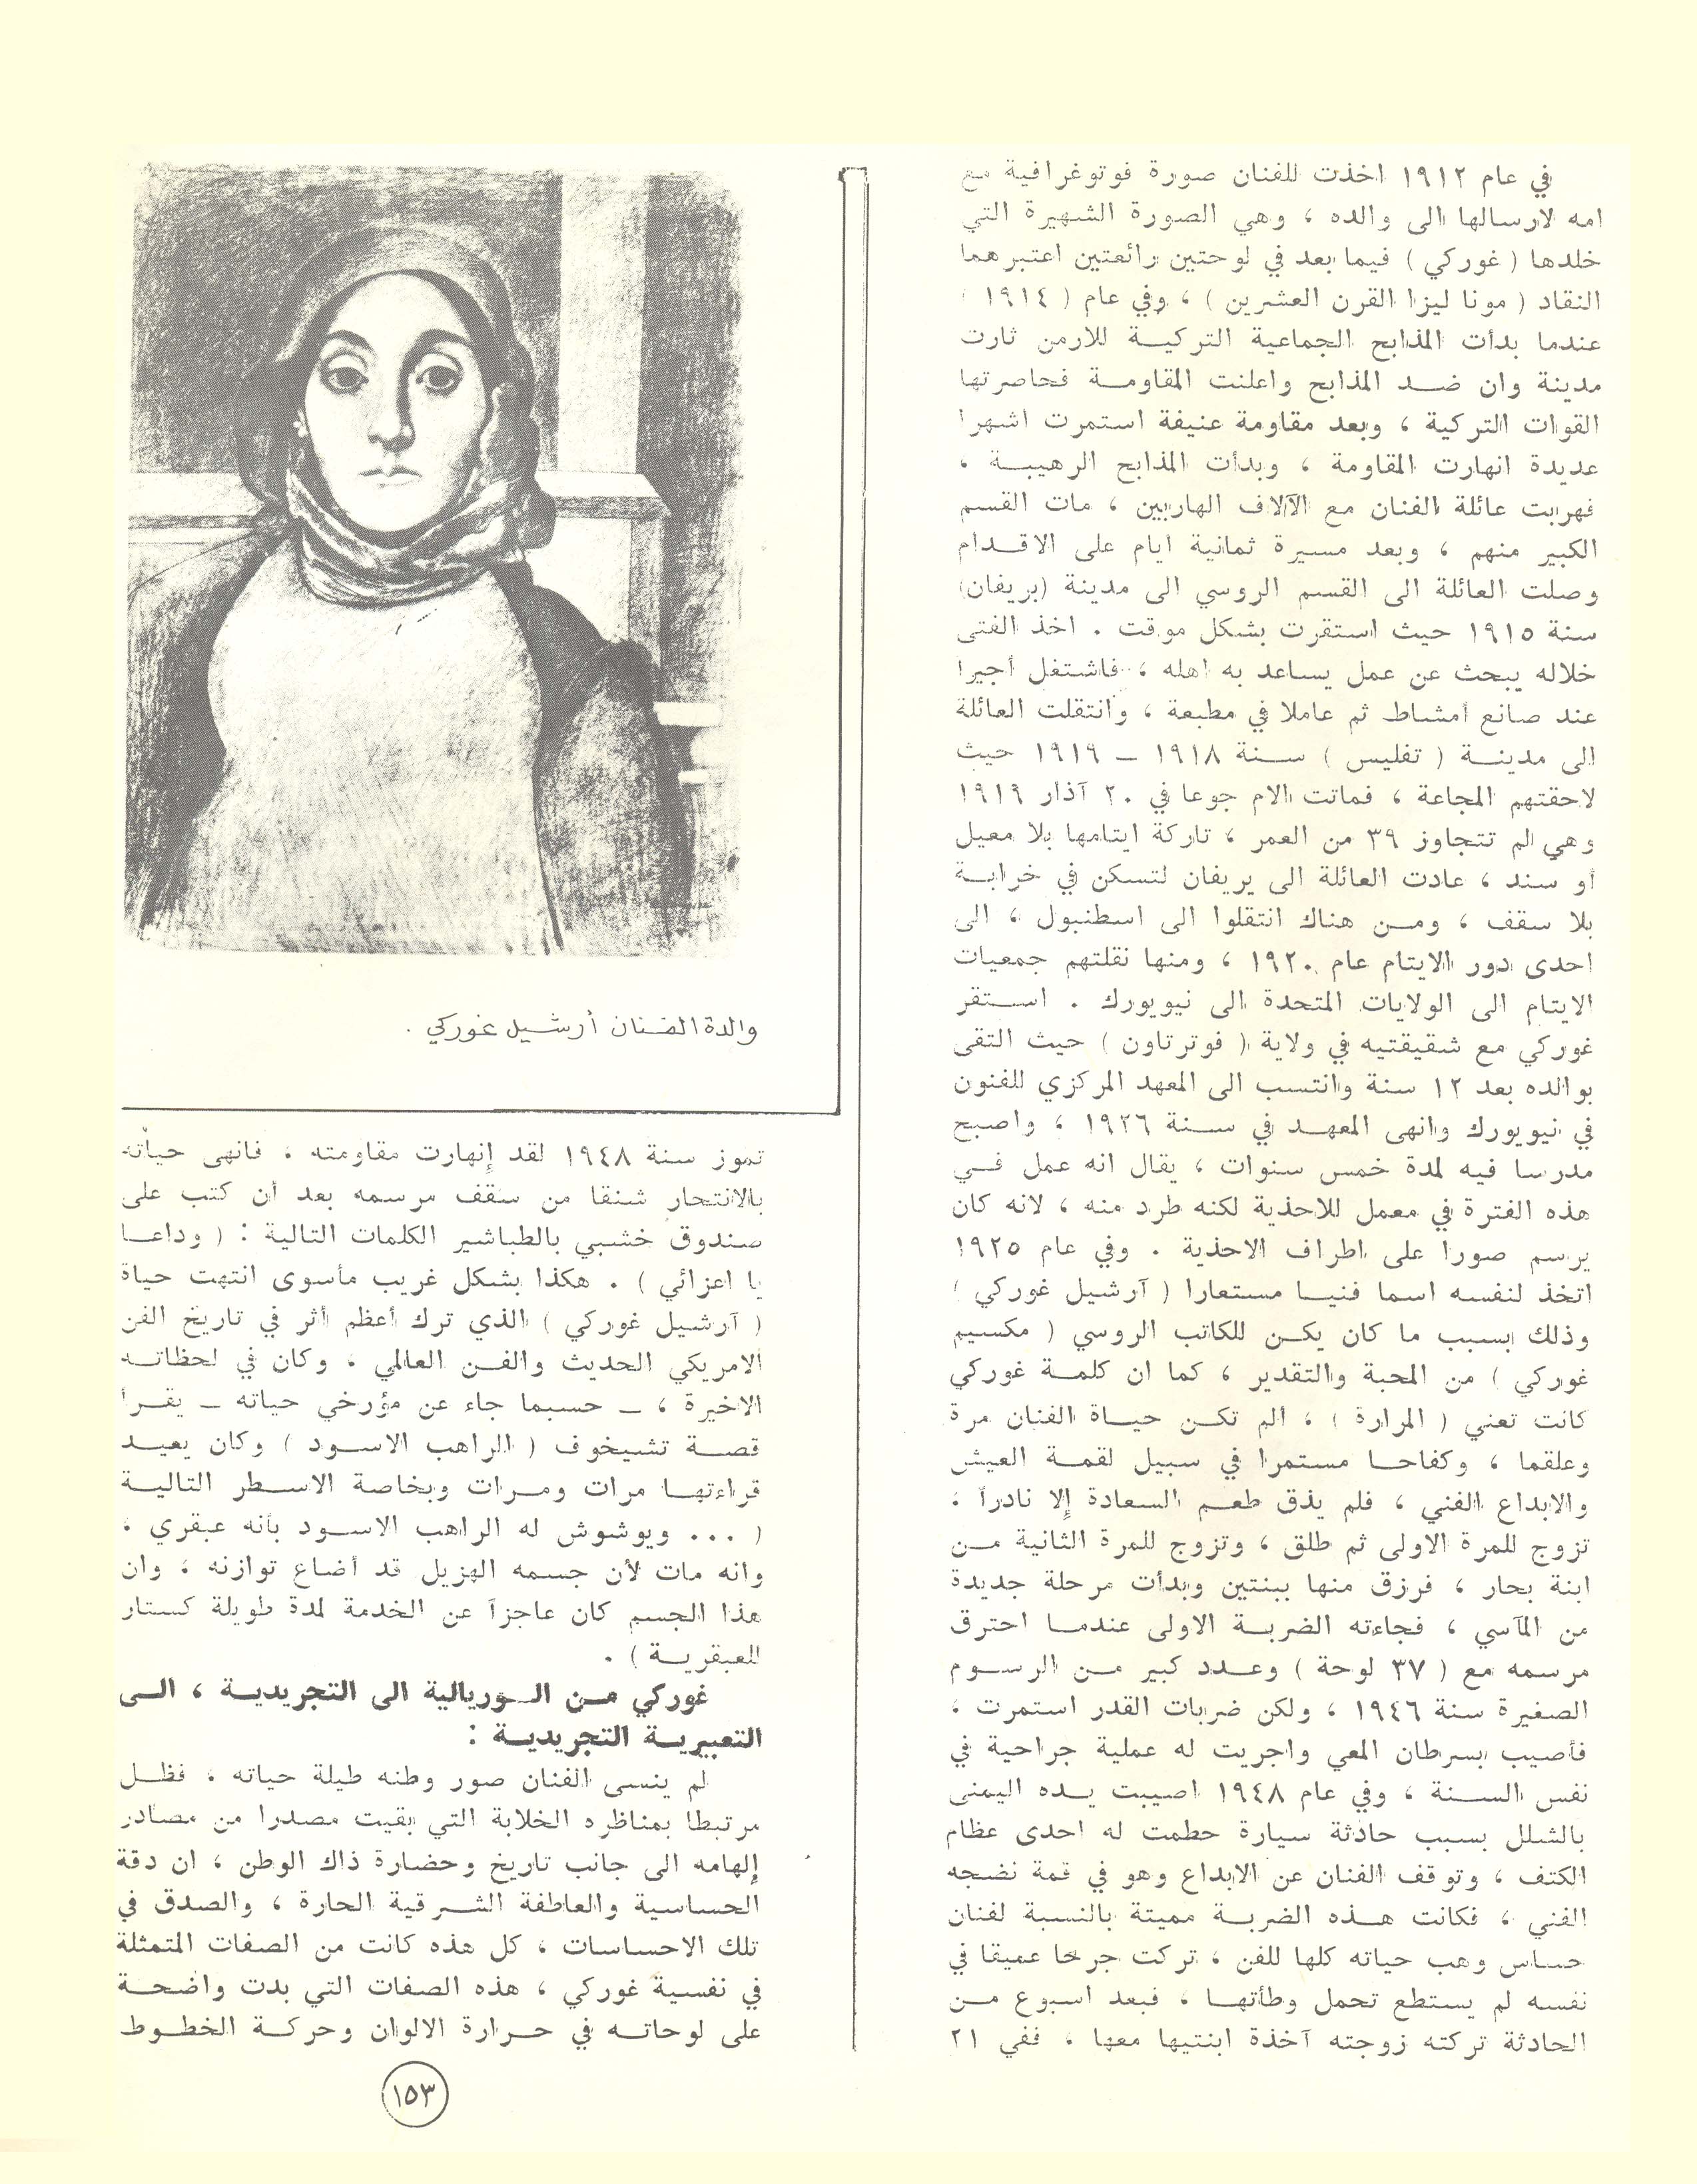 في عام ١٩١٢ اخذت للفنان صورة فوتوغرافية مع
امه لارسالها الى والده ، وهي الصورة الشهيرة التي
خلدها ( غوركي ) فيما بعد في لوحتين رائعتين اعتبرهما
النقاد ( مونا ليزا القرن العشرين ) ، وفي عام ( ١٩١٤ )
عندما بدأت المذابح الجماعية التركيـــة للارمن ثارت
مدينة وان ضـــد المذابح واعلنت المقاومـــة فحاصرتها
القوات التركية ، وبعد مقاومة عنيفة استمرت اشهرا
عديدة انهارت المقاومة ، وبدأت المذابح الرهيبـــة ،
فهربت عائلة الفنان مع الآلاف الهاربين ، مات القسم
الكبير منهم ، وبعد مسيرة ثمانية ايام على الاقـــدام
وصلت العائلة الى القسم الروسي الى مدينة (يريفان)
سنة ١٩١٥ حيث استقرت بشكل موقت . اخذ الفتى
خلاله يبحث عن عمل يساعد به اهله ، فاشتغل أجيرا
عند صانع أمشاط ثم عاملا في مطبعة ، وانتقلت العائلة
الى مدينـــة ( تفليس ) سـنة ١٩١٨ ــ ١٩١٩ حيث
لاحقتهم المجاعة ، فماتت الام جوعا في ٢٠ آذار ١٩١٩
وهي لم تتجاوز ٣٩ من العمر ، تاركة ايتامها بلا معيل
أو سند ، عادت العائلة الى يريفان لتسكن في خرابـــة
بلا سقف ، ومــن هناك انتقلوا الى اسطنبول ، الى
احدى دور الايتام عام ١٩٢٠ ، ومنها نقلتهم جمعيات
الايتام الى الولايات المتحدة الى نيويورك . اســـتقر
غوركي مع شقيقتيه في ولاية ( فوترتاون ) حيث التقى
بوالده بعد ١٢ سنة وانتسب الى المعهد المركزي للفنون
في نيويورك وانهى المعهــد في ســنة ١٩٢٦ ، واصبح
مدرسا فيه لمدة خمس سنوات ، يقال انه عمل فــي
هذه الفترة في معمل للاحذية لكنه طرد منه ، لانه كان
يرسم صورا على اطراف الاحذية . وفي عام ١٩٢٥
اتخذ لنفسه اسما فنيــا مستعارا ( آرشيل غوركي )
وذلك بسبب ما كان يكــن للكاتب الروسي ( مكسيم
غوركي ) من المحبة والتقدير ، كما ان كلمــة غوركي
كانت تعني ( المرارة ) ، الم تكــن حيــاة الفنان مرة
وعلقما ، وكفاحــا مستمرا في سبيل لقمــة العيش
والابداع الفني ، فلم يذق طعــم السعادة إلا نادرآ ،
تزوج للمرة الاولى ثم طلق ، وتزوج للمرة الثانية مــن
ابنة بحار ، فرزق منها ببنتين وبدأت مرحلة جديدة
من المآسي ، فجاءته الضربــة الاولى عندمــا احترق
مرسمه مع ( ٣٧ لوحة ) وعــدد كبير مــن الرســوم
الصغيرة سنة ١٩٤٦ ، ولكن ضربات القدر استمرت ،
فأصيب بسرطان المعي واجريت له عملية جراحية في
نفس الســـنة ، وفي عام ١٩٤٨ اصيبت يــده اليمنى
بالشلل بسبب حادثة سيارة حطمت له احدى عظام
الكتف ، وتوقف الفنان عن الابداع وهو في قمة نضجه
الفني ، فكانت هــذه الضربــة مميتة بالنسبة لفنان
حساس وهب حياته كلها للفن ، تركت جرحا عميقا في
نفسه لم يستطع تحمل وطأتهــا ، فبعد اسبوع مــن
الحادثة تركته زوجته آخذة ابنتيها معها ، ففي ٢١
والدة الفنان أرشيل غوركي .
تموز سنة ١٩٤٨ لقد إنهارت مقاومته ، فانهى حياته
بالانتحار شنقا من سقف مرسمه بعد أن كتب على
صندوق خشبي بالطباشير الكلمات التالية : ( وداعــا
يا اعزائي ) . هكذا بشكل غريب مأسوى انتهت حياة
( آرشيل غوركي ) الذي ترك أعظم أثر في تاريخ الفن
الامريكي الحديث والفــن العالمي ، وكان في لحظاتــه
الاخيرة ، ــ حسبما جاء عن مؤرخي حياته ــ يقــرأ
قصــة تشيخوف ( الراهب الاســود ) وكان يعيــد
قراءتهــا مرات ومــرات وبخاصة الاســطر التاليــة
( ... ويوشوش له الراهب الاســود بأنه عبقري ،
وانه مات لأن جسمه الهزيل قد أضاع توازنه ، وان
هذا الجسم كان عاجزآ عن الخدمة لمدة طويلة كستار
للعبقريــة ) .
غوركي مــن الــوريالية الى التجريديــة ، الــى
التعبيريــة التجريديــة :
لم ينسى الفنان صور وطنه طيلة حياته ، فظــل
مرتبطا بمناظره الخلابة التي بقيت مصدرا من مصادر
إلهامه الى جانب تاريخ وحضارة ذاك الوطن ، ان دقة
الحساسية والعاطفة الشــرقية الحارة ، والصدق في
تلك الاحساسات ، كل هذه كانت من الصفات المتمثلة
في نفسية غوركي ، هذه الصفات التي بدت واضحــة
على لوحاتــه في حــرارة الالوان وحركــة الخطــوط
١٥٣